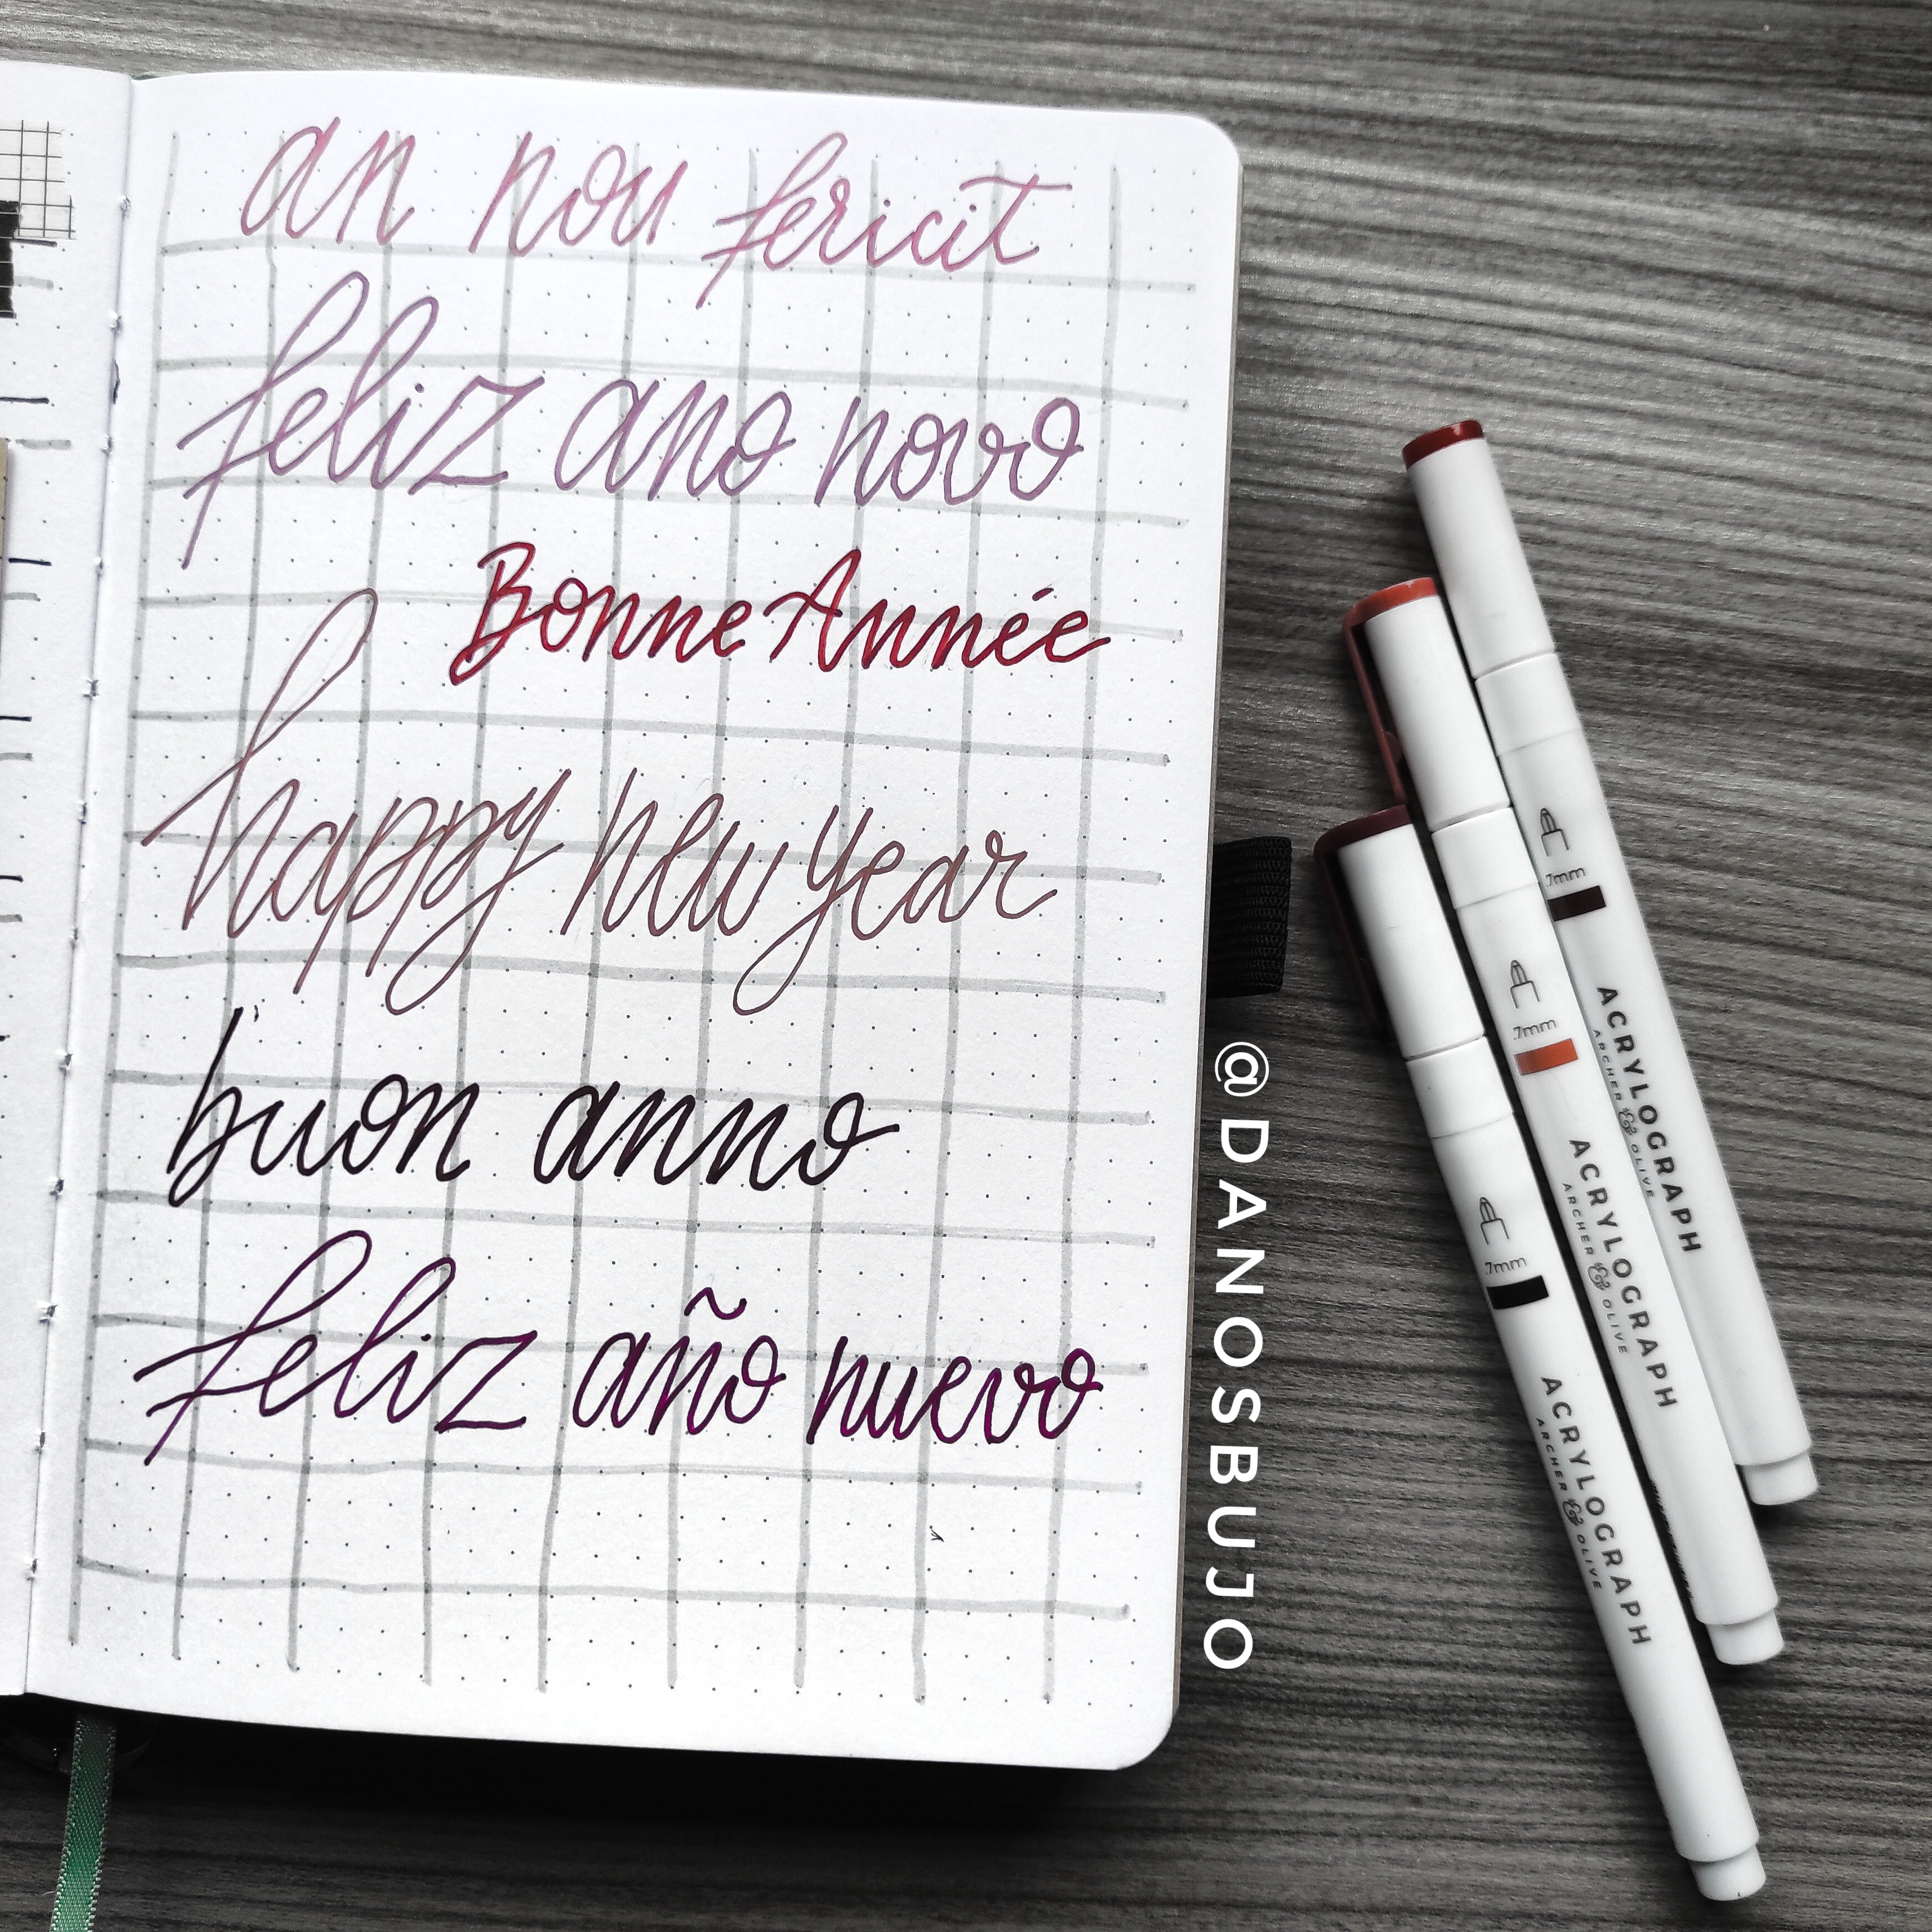 an nou fericit
feliz ano novo
Bonne Année
happy new year
buon anno
feliz año nuevo
@DANOSBUJO
.7mm
ACRYLOGRAPH
ARCHER & OLIVE
.7mm
ACRYLOGRAPH
ARCHER & OLIVE
.7mm
ACRYLOGRAPH
ARCHER & OLIVE